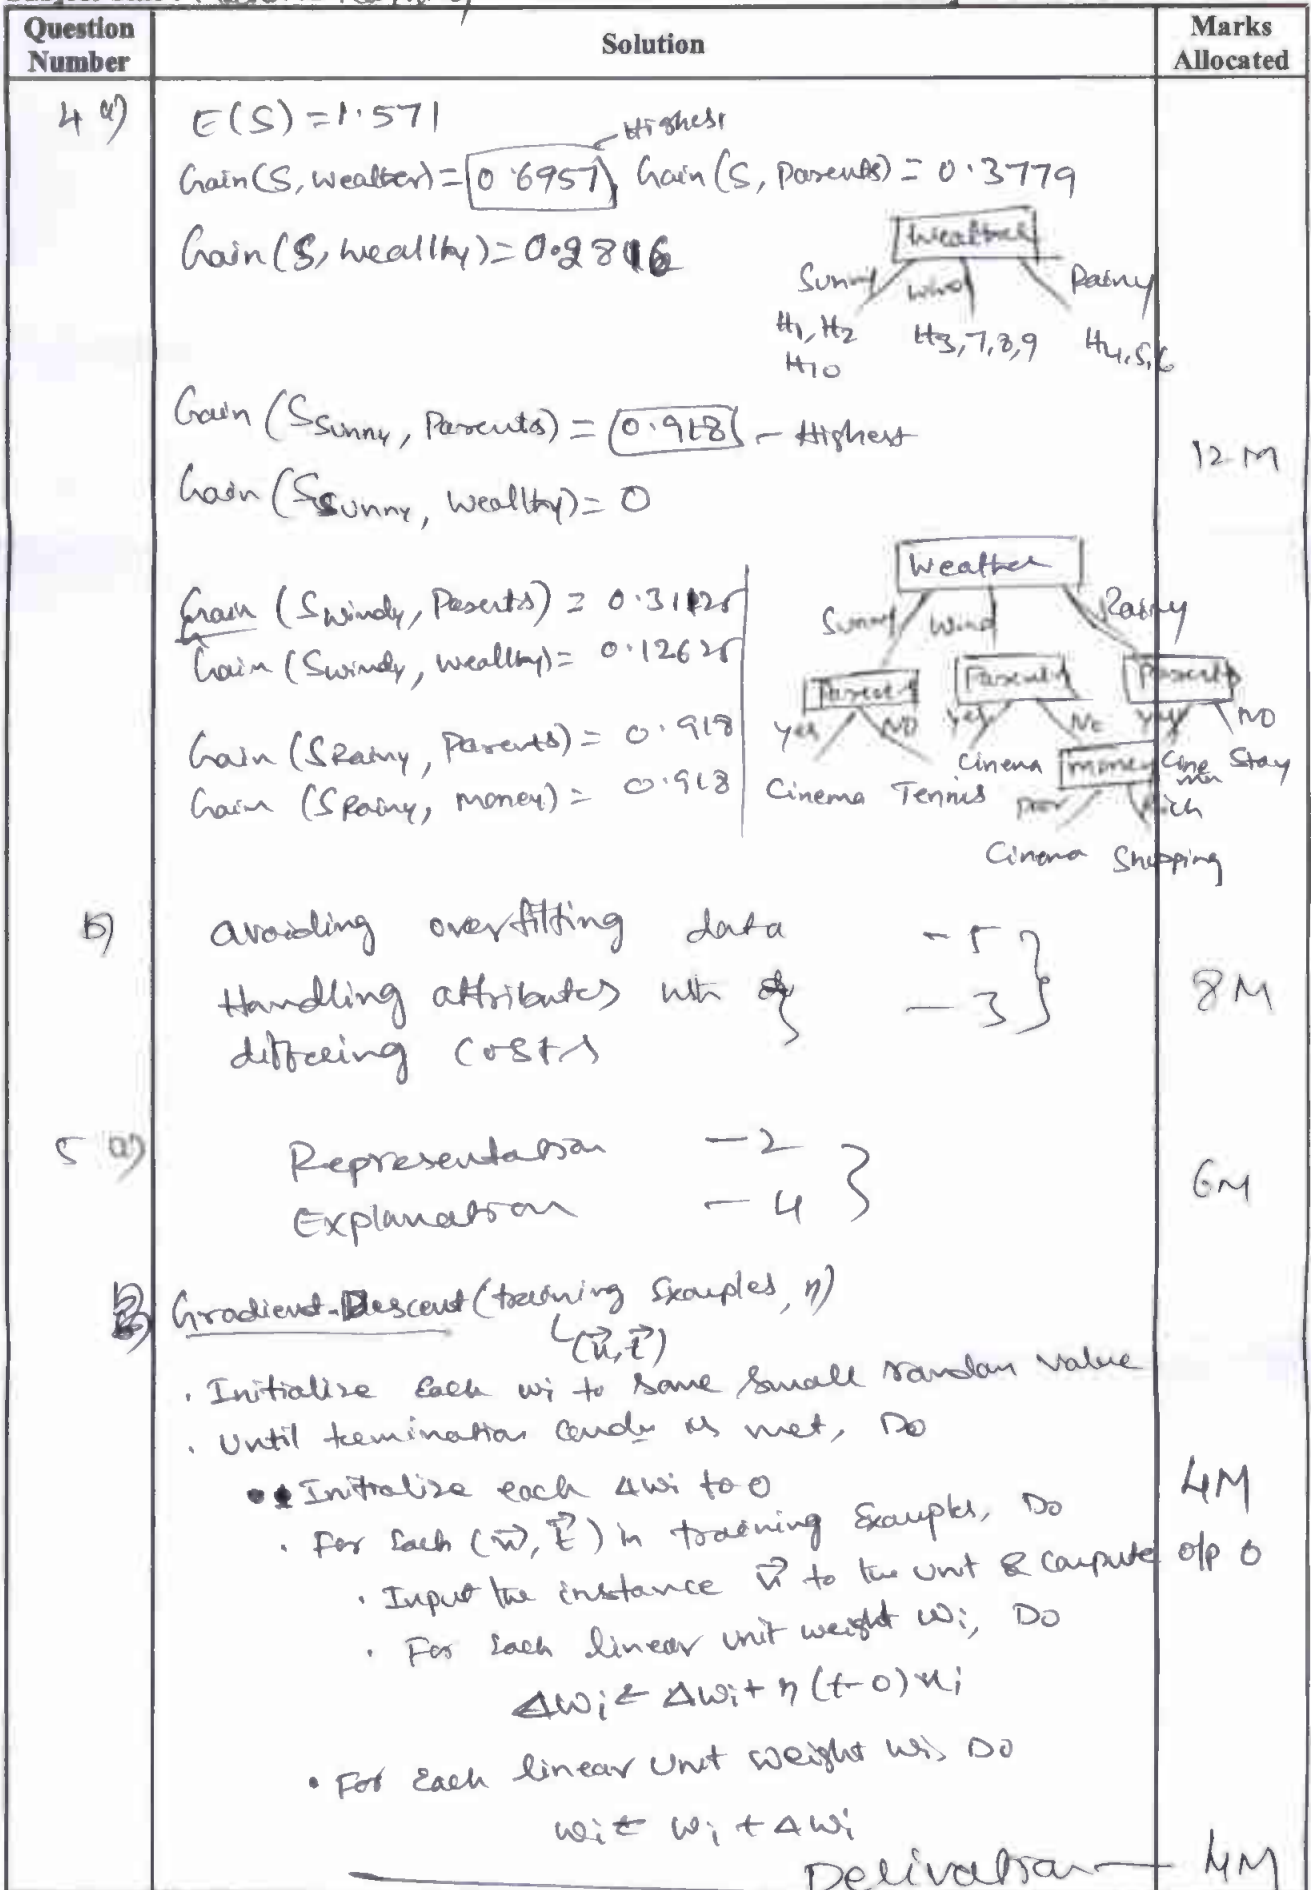 Question Number
Solution
Marks Allocated
4 a)
E(S) = 1.571
Gain(S, Weather) = 0.6957, Gain(S, Parents) = 0.3779
Highest
Gain(S, Wealthy) = 0.2816
Weather
Sunny Wind Rainy
H1, H2 H3,7,8,9 H4,5,6
H10
Gain (S Sunny, Parents) = 0.918 - Highest
12 M
Gain (S Sunny, Wealthy) = 0
Gain (S Windy, Parents) = 0.31125
Gain (S Windy, Wealthy) = 0.12625
Gain (S Rainy, Parents) = 0.918
Gain (S Rainy, money) = 0.918
Weather
Sunny Wind Rainy
Parents Parents Parents
Yes NO Yes No Yes NO
Cinema Tennis Cinema money Cinema Stay
Poor Rich
Cinema Shopping
b)
avoiding overfitting data - 5
Handling attributes with - 3
differing costs
8M
5 a)
Representation - 2
Explanation - 4
6M
b)
Gradient-Descent (training Examples, η)
. Initialize Each wi to some small random value
. Until termination is met, Do
Initialize each Δwi to 0
4M
. For Each in training Examples, Do
. Input the instance to the unit & compute o/p o
. For Each linear unit weight wi, Do
Δwi ← Δwi + η (t-o) xi
• For Each linear unit weight wi, Do
wi ← wi + Δwi
Derivation — 4M